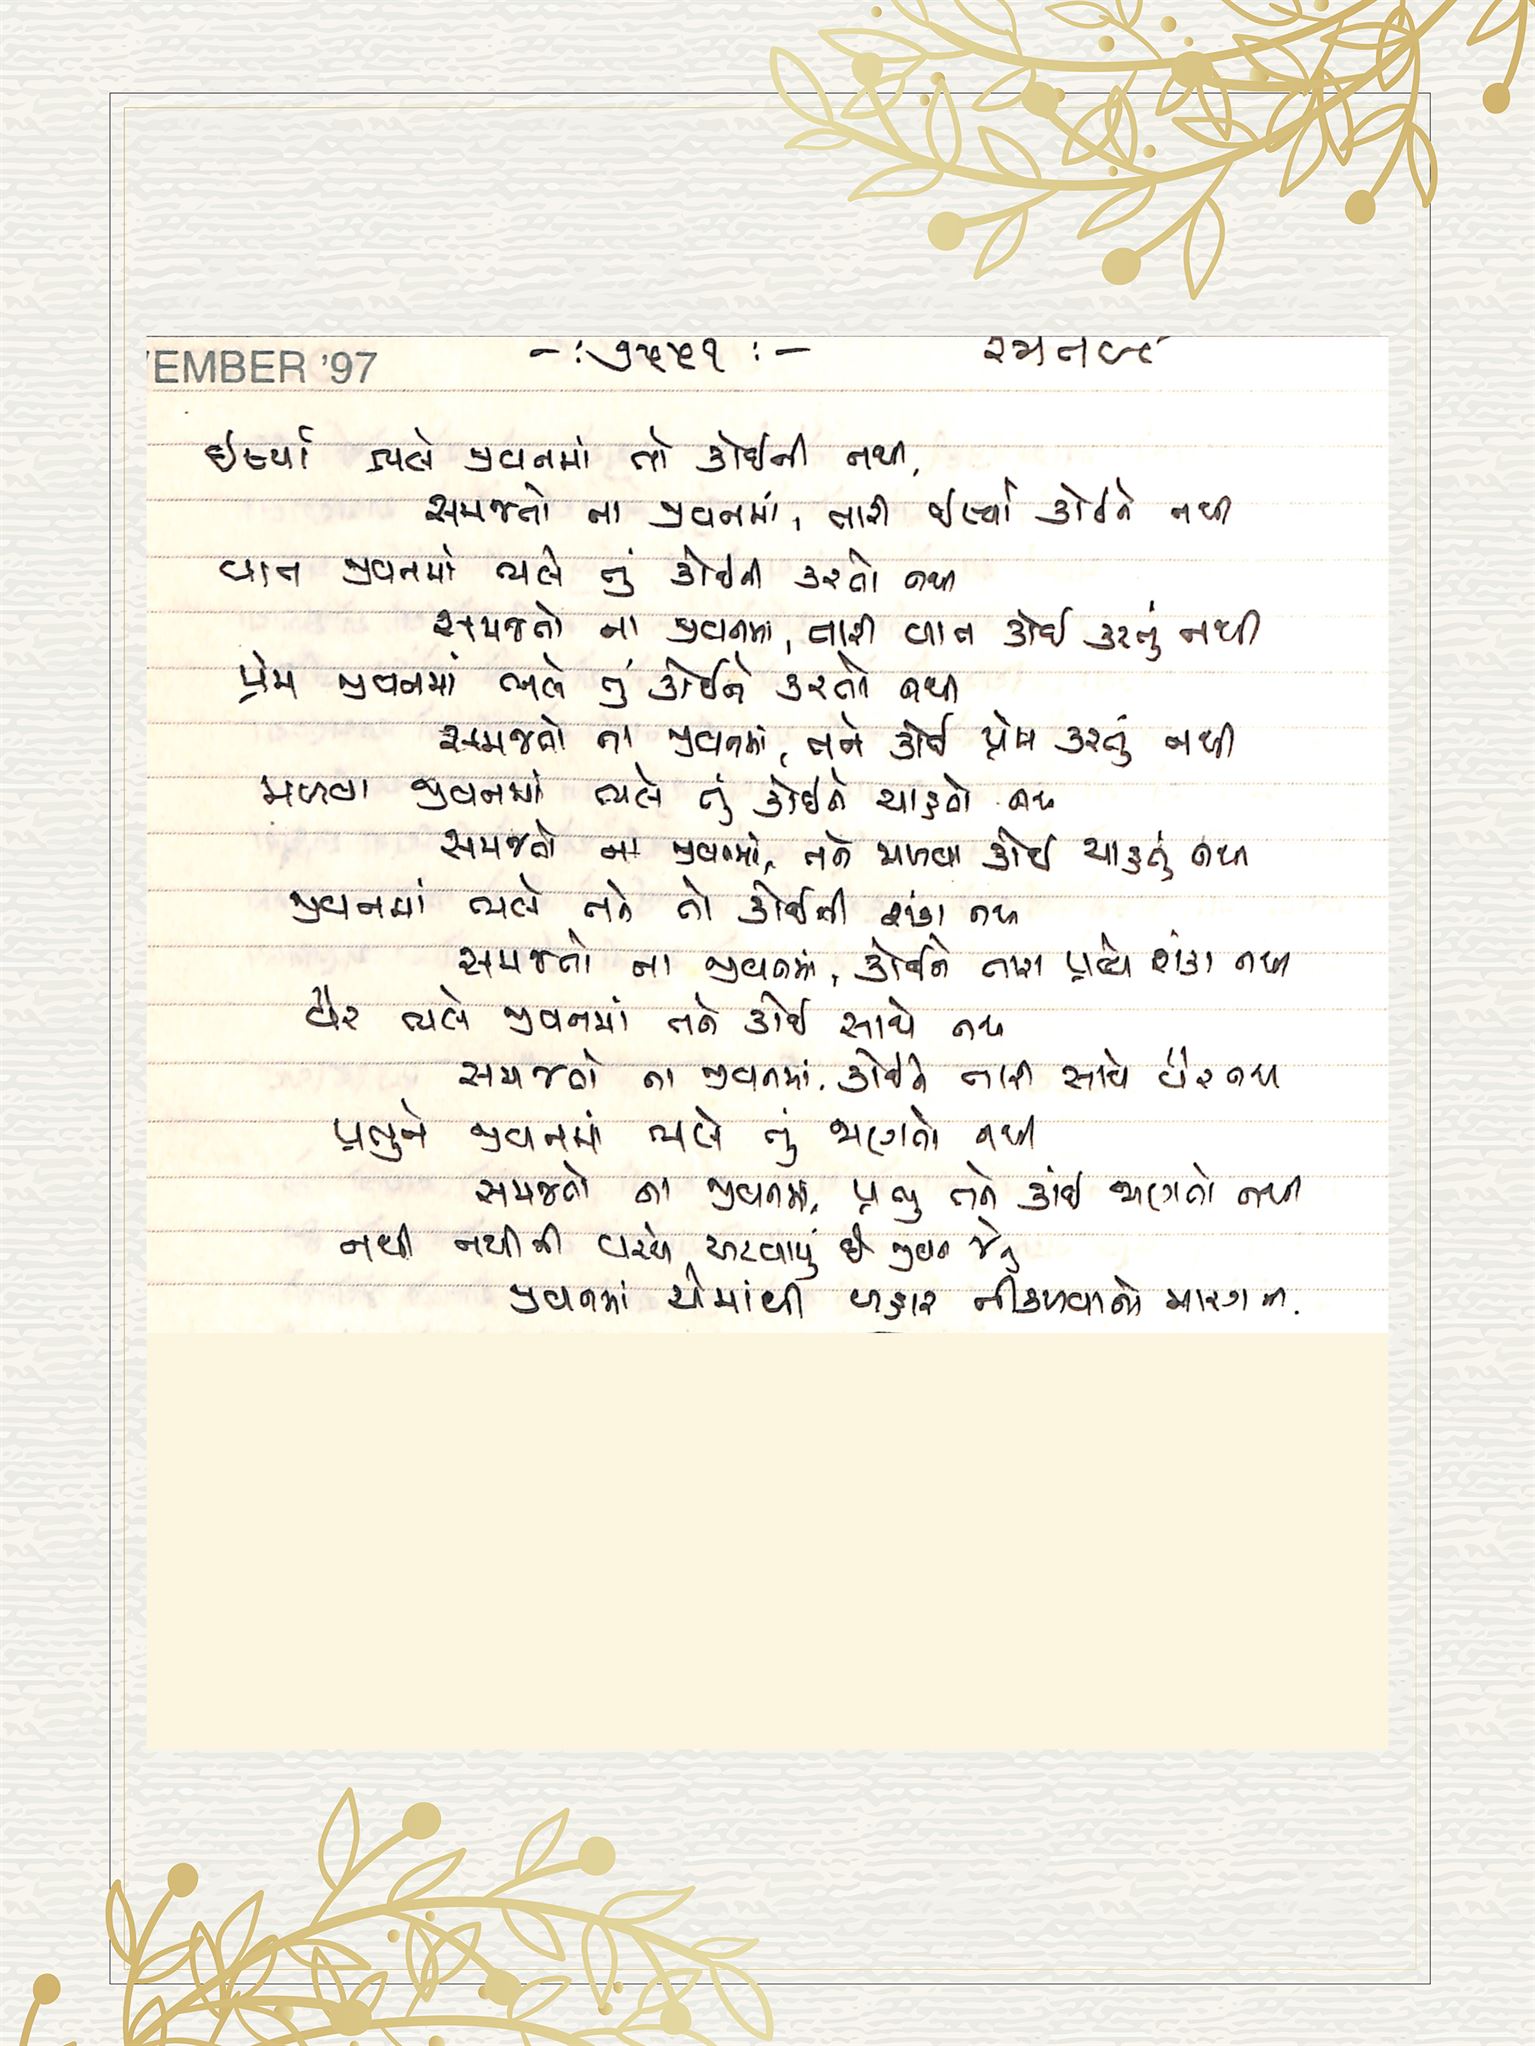 VEMBER '97 -: ૭૫૫૧ :-
ઇર્ષ્યા ભલે જીવનમાં તો કોઈની નથી,
સમજતો ના જીવનમાં, તારી ઇર્ષ્યા કોઈને નથી
વાત જીવનમાં ભલે તું કોઈની કરતો નથી
સમજતો ના જીવનમાં, તારી વાત કોઈ કરતું નથી
પ્રેમ જીવનમાં ભલે તું કોઈને કરતો નથી
સમજતો ના જીવનમાં, તને કોઈ પ્રેમ કરતું નથી
મળવા જીવનમાં ભલે તું કોઈને ચાહતો નથી
સમજતો ના જીવનમાં, તને મળવા કોઈ ચાહતું નથી
જીવનમાં ભલે તને તો કોઈની શંકા નથી
સમજતો ના જીવનમાં, કોઈને તારા પ્રત્યે શંકા નથી
વૈર ભલે જીવનમાં તને કોઈ સાથે નથી
સમજતો ના જીવનમાં, કોઈને તારી સાથે વૈર નથી
પ્રભુને જીવનમાં ભલે તું જાણતો નથી
સમજતો ના જીવનમાં, પ્રભુ તને કાંઈ જાણતો નથી
નથી નથીની વચ્ચે અટવાયું છે જીવન જેનું
જીવનમાં એમાંથી બહાર નીકળવાનો મારગ નથી.